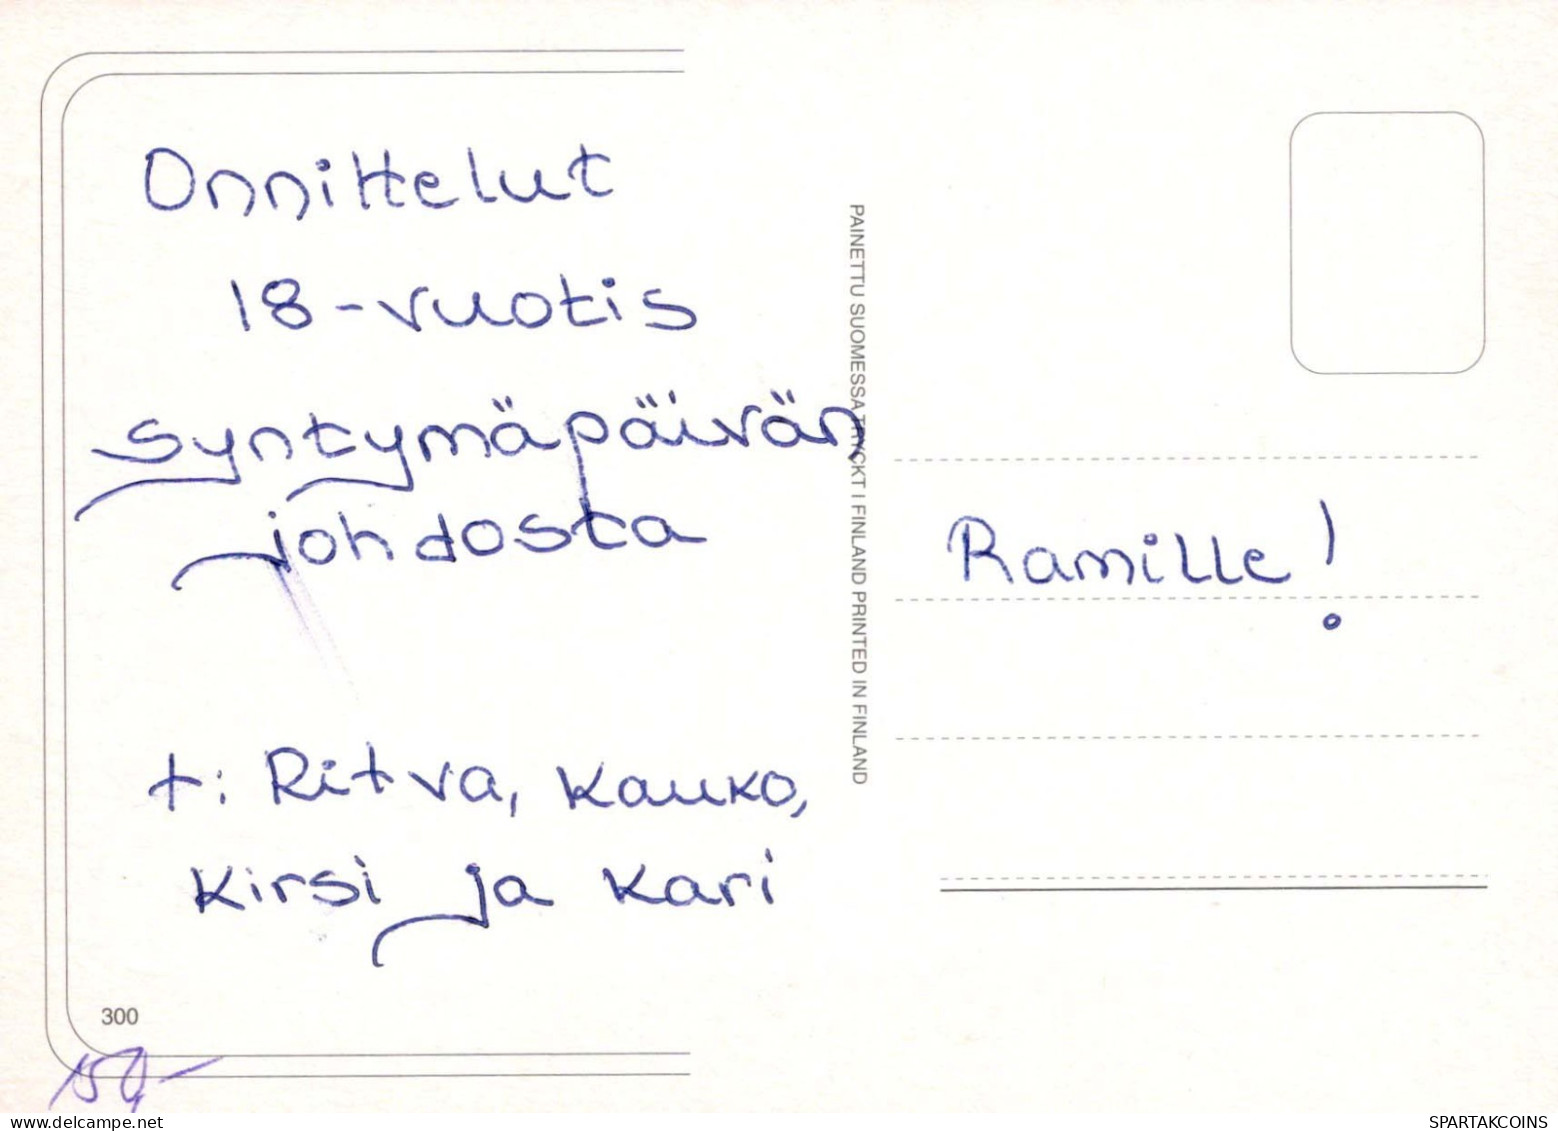 Onnittelut
18-vuotis
syntymäpäivän
johdosta
t: Ritva, Kauko,
Kirsi ja Kari
300
PAINETTU SUOMESSA TRYCKT I FINLAND PRINTED IN FINLAND
Ramille!
SPARTAKCOINS